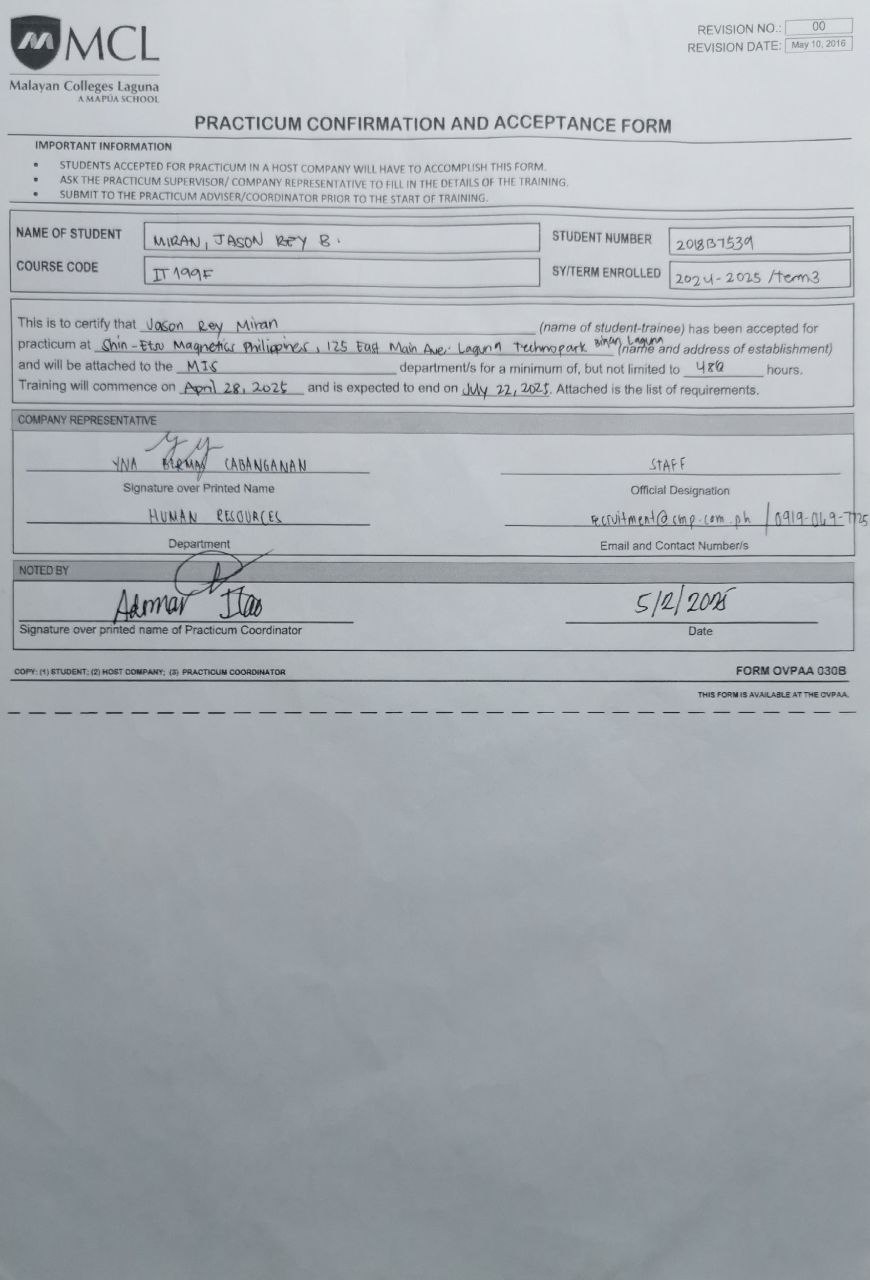 MCL
REVISION NO.: 00
REVISION DATE: May 10, 2016
Malayan Colleges Laguna
A MAPÚA SCHOOL
PRACTICUM CONFIRMATION AND ACCEPTANCE FORM
IMPORTANT INFORMATION
• STUDENTS ACCEPTED FOR PRACTICUM IN A HOST COMPANY WILL HAVE TO ACCOMPLISH THIS FORM.
• ASK THE PRACTICUM SUPERVISOR/ COMPANY REPRESENTATIVE TO FILL IN THE DETAILS OF THE TRAINING.
• SUBMIT TO THE PRACTICUM ADVISER/COORDINATOR PRIOR TO THE START OF TRAINING.
NAME OF STUDENT MIRAN, JASON REY B. STUDENT NUMBER 2018B7539
COURSE CODE IT199F SY/TERM ENROLLED 2024-2025 /Term3
This is to certify that Jason Rey Miran (name of student-trainee) has been accepted for
practicum at Shin-Etsu Magnetics Philippines, 125 East Main Ave. Laguna Technopark Biñan, Laguna (name and address of establishment)
and will be attached to the MIS department/s for a minimum of, but not limited to hours.
Training will commence on April 28, 2025 and is expected to end on July 22, 2025. Attached is the list of requirements.
COMPANY REPRESENTATIVE
YNA CABANGANAN STAFF
Signature over Printed Name Official Designation
HUMAN RESOURCES recruitment@cmp.com.ph / 0919-069-7725
Department Email and Contact Number/s
NOTED BY
Admar Itao 5/2/2025
Signature over printed name of Practicum Coordinator Date
COPY: (1) STUDENT; (2) HOST COMPANY; (3) PRACTICUM COORDINATOR FORM OVPAA 030B
THIS FORM IS AVAILABLE AT THE OVPAA.